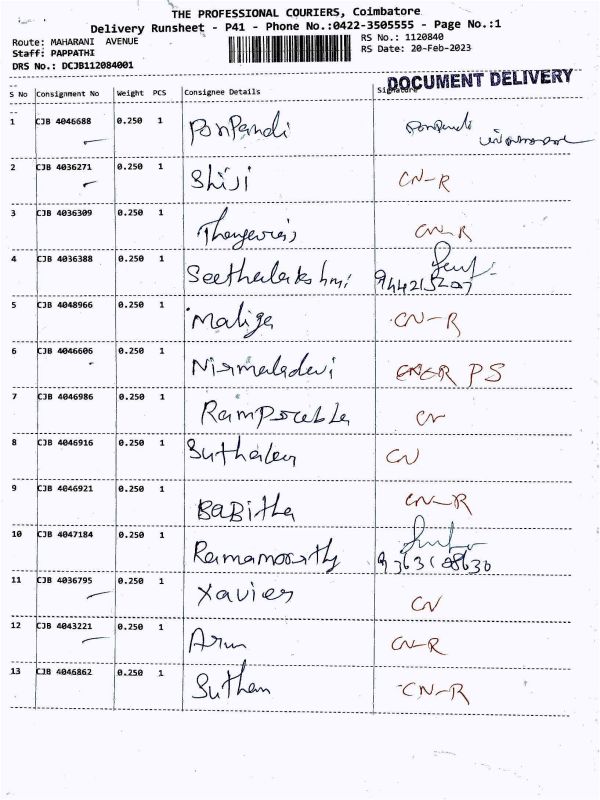 THE PROFESSIONAL COURIERS, Coimbatore
Delivery Runsheet - P41 - Phone No.:0422-3505555 - Page No.:1
Route: MAHARANI AVENUE RS No.: 1120840
Staff: PAPPATHI RS Date: 20-Feb-2023
DRS No.: DCJB112084001
DOCUMENT DELIVERY
S No Consignment No Weight PCS Consignee Details Signature
1 CJB 4046688 0.250 1 PonPandi PonPandi
2 CJB 4036271 0.250 1 Shiji CN-R
3 CJB 4036309 0.250 1 Thangaraj CN-R
4 CJB 4036388 0.250 1 Seethalakshmi
5 CJB 4048966 0.250 1 Maliga CN-R
6 CJB 4046606 0.250 1 Nirmaladevi PS
7 CJB 4046986 0.250 1 CN
8 CJB 4046916 0.250 1 CN
9 CJB 4046921 0.250 1 BaBitha CN-R
10 CJB 4047184 0.250 1 Ramamoorthy
11 CJB 4036795 0.250 1 Xavier CN
12 CJB 4043221 0.250 1 Arun CN-R
13 CJB 4046862 0.250 1 Suthan CN-R